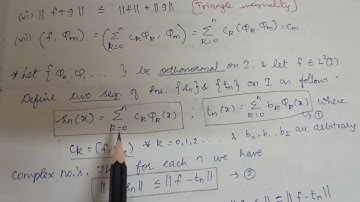 (vi) || f+g || ≤ ||f|| + ||g|| [Triangle inequality]
(f, φm) = (Σ_{k=0}^{n} ck φk, φm) = Σ_{k=0}^{n} ck (φk, φm) = cm
* Let {φ0, φ1, ...} be orthonormal on I, & let f ∈ L²(I).
Define two seq of fns. {sn} & {tn} on I as follows.
sn(x) = Σ_{k=0}^{n} ck φk(x) ; tn(x) = Σ_{k=0}^{n} bk φk(x) where
ck = (f, ∀ k = 0,1,2... & b0, b1, b2 are arbitrary
complex no.s. for each n we have
sn || ≤ || f - tn ||